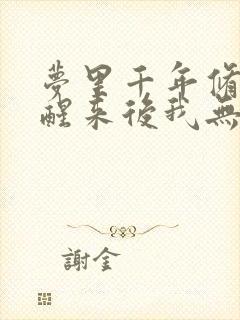 夢里千年脩
醒來後我無
謝金